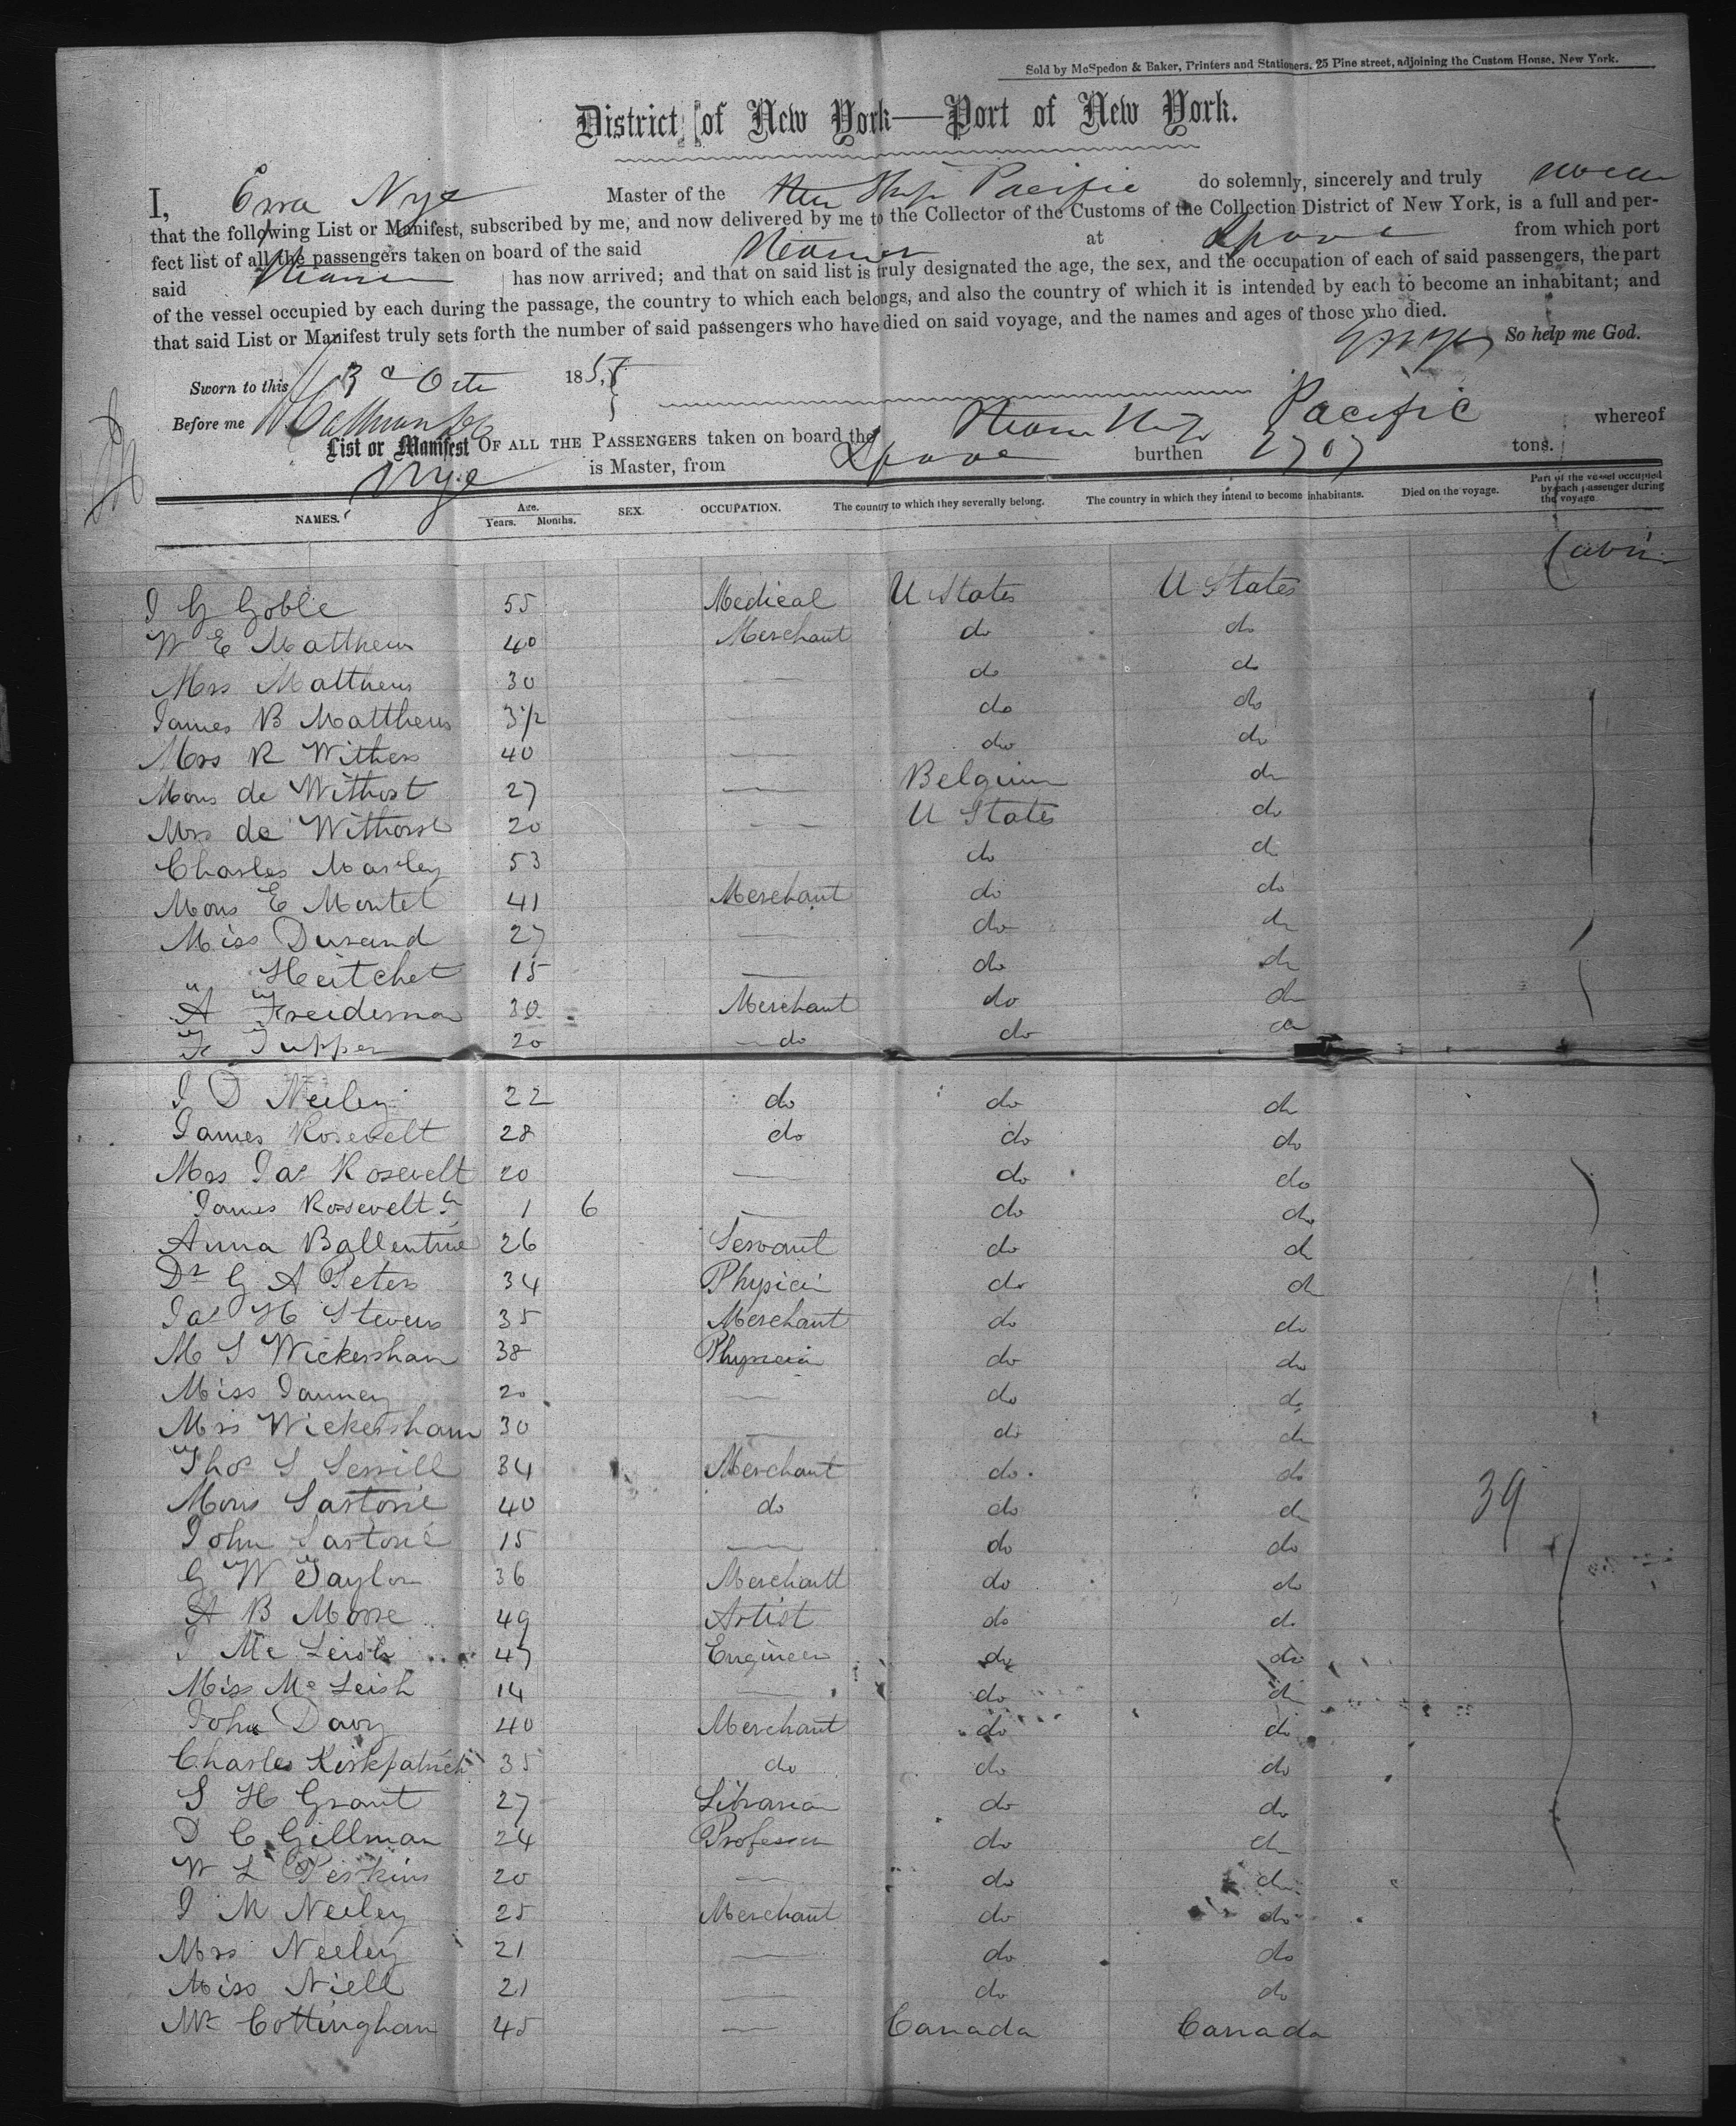 Sold by McSpedon & Baker, Printers and Stationers, 25 Pine street, adjoining the Custom House, New York.
District of New York—Port of New York.
I, Ezra Nye Master of the Stm Ship Pacific do solemnly, sincerely and truly swear
that the following List or Manifest, subscribed by me, and now delivered by me to the Collector of the Customs of the Collection District of New York, is a full and per-
fect list of all the passengers taken on board of the said Steamer at Lpool from which port
said Steamer has now arrived; and that on said list is truly designated the age, the sex, and the occupation of each of said passengers, the part
of the vessel occupied by each during the passage, the country to which each belongs, and also the country of which it is intended by each to become an inhabitant; and
that said List or Manifest truly sets forth the number of said passengers who have died on said voyage, and the names and ages of those who died.
So help me God.
Sworn to this 3d Octr 185
Before me
List or Manifest OF ALL THE PASSENGERS taken on board the Steam Ship Pacific whereof
Nye is Master, from Lpool burthen 2707 tons.
NAMES. Age. Years. Months. SEX. OCCUPATION. The country to which they severally belong. The country in which they intend to become inhabitants. Died on the voyage. Part of the vessel occupied by each passenger during the voyage.
Cabin
J G Goble 55 Medical U States U States
W E Matthews 40 Merchant do do
Mrs Matthews 30 — do do
James B Matthews 3½ — do do
Mrs R Withers 40 — do do
Mons de Withorst 27 — Belgium do
Mrs de Withorst 20 — U States do
Charles Marley 53 do do
Mons E Montet 41 Merchant do do
Miss Durand 27 — do do
" Heitchet 15 — do do
A Freideman 30 Merchant do do
F Tupper 20 do do do
J D Neeley 22 do do do
James Rosevelt 28 do do do
Mrs Jas Rosevelt 20 — do do
James Rosevelt Jr 1 6 — do do
Anna Ballentine 26 Servant do do
Dr G A Peters 34 Physici do do
Jas H Stevens 35 Merchant do do
M S Wickersham 38 Physicia do do
Miss Janney 20 — do do
Mrs Wickersham 30 — do do
Thos S Serrill 34 Merchant do do
Mons Sartorie 40 do do do
39
John Sartorie 15 — do do
G W Taylor 36 Merchantt do do
A B Morse 49 Artist do do
J Mc Leish 47 Engineer do do
Miss Mc Leish 14 — do do
John Davy 40 Merchant do do
Charles Kirkpatrick 35 do do do
S H Grant 27 Librarian do do
D C Gillman 24 Professor do do
W L Perkins 20 — do do
J M Neeley 25 Merchant do do
Mrs Neeley 21 — do do
Miss Niell 21 — do do
Mr Cottingham 45 — Canada Canada